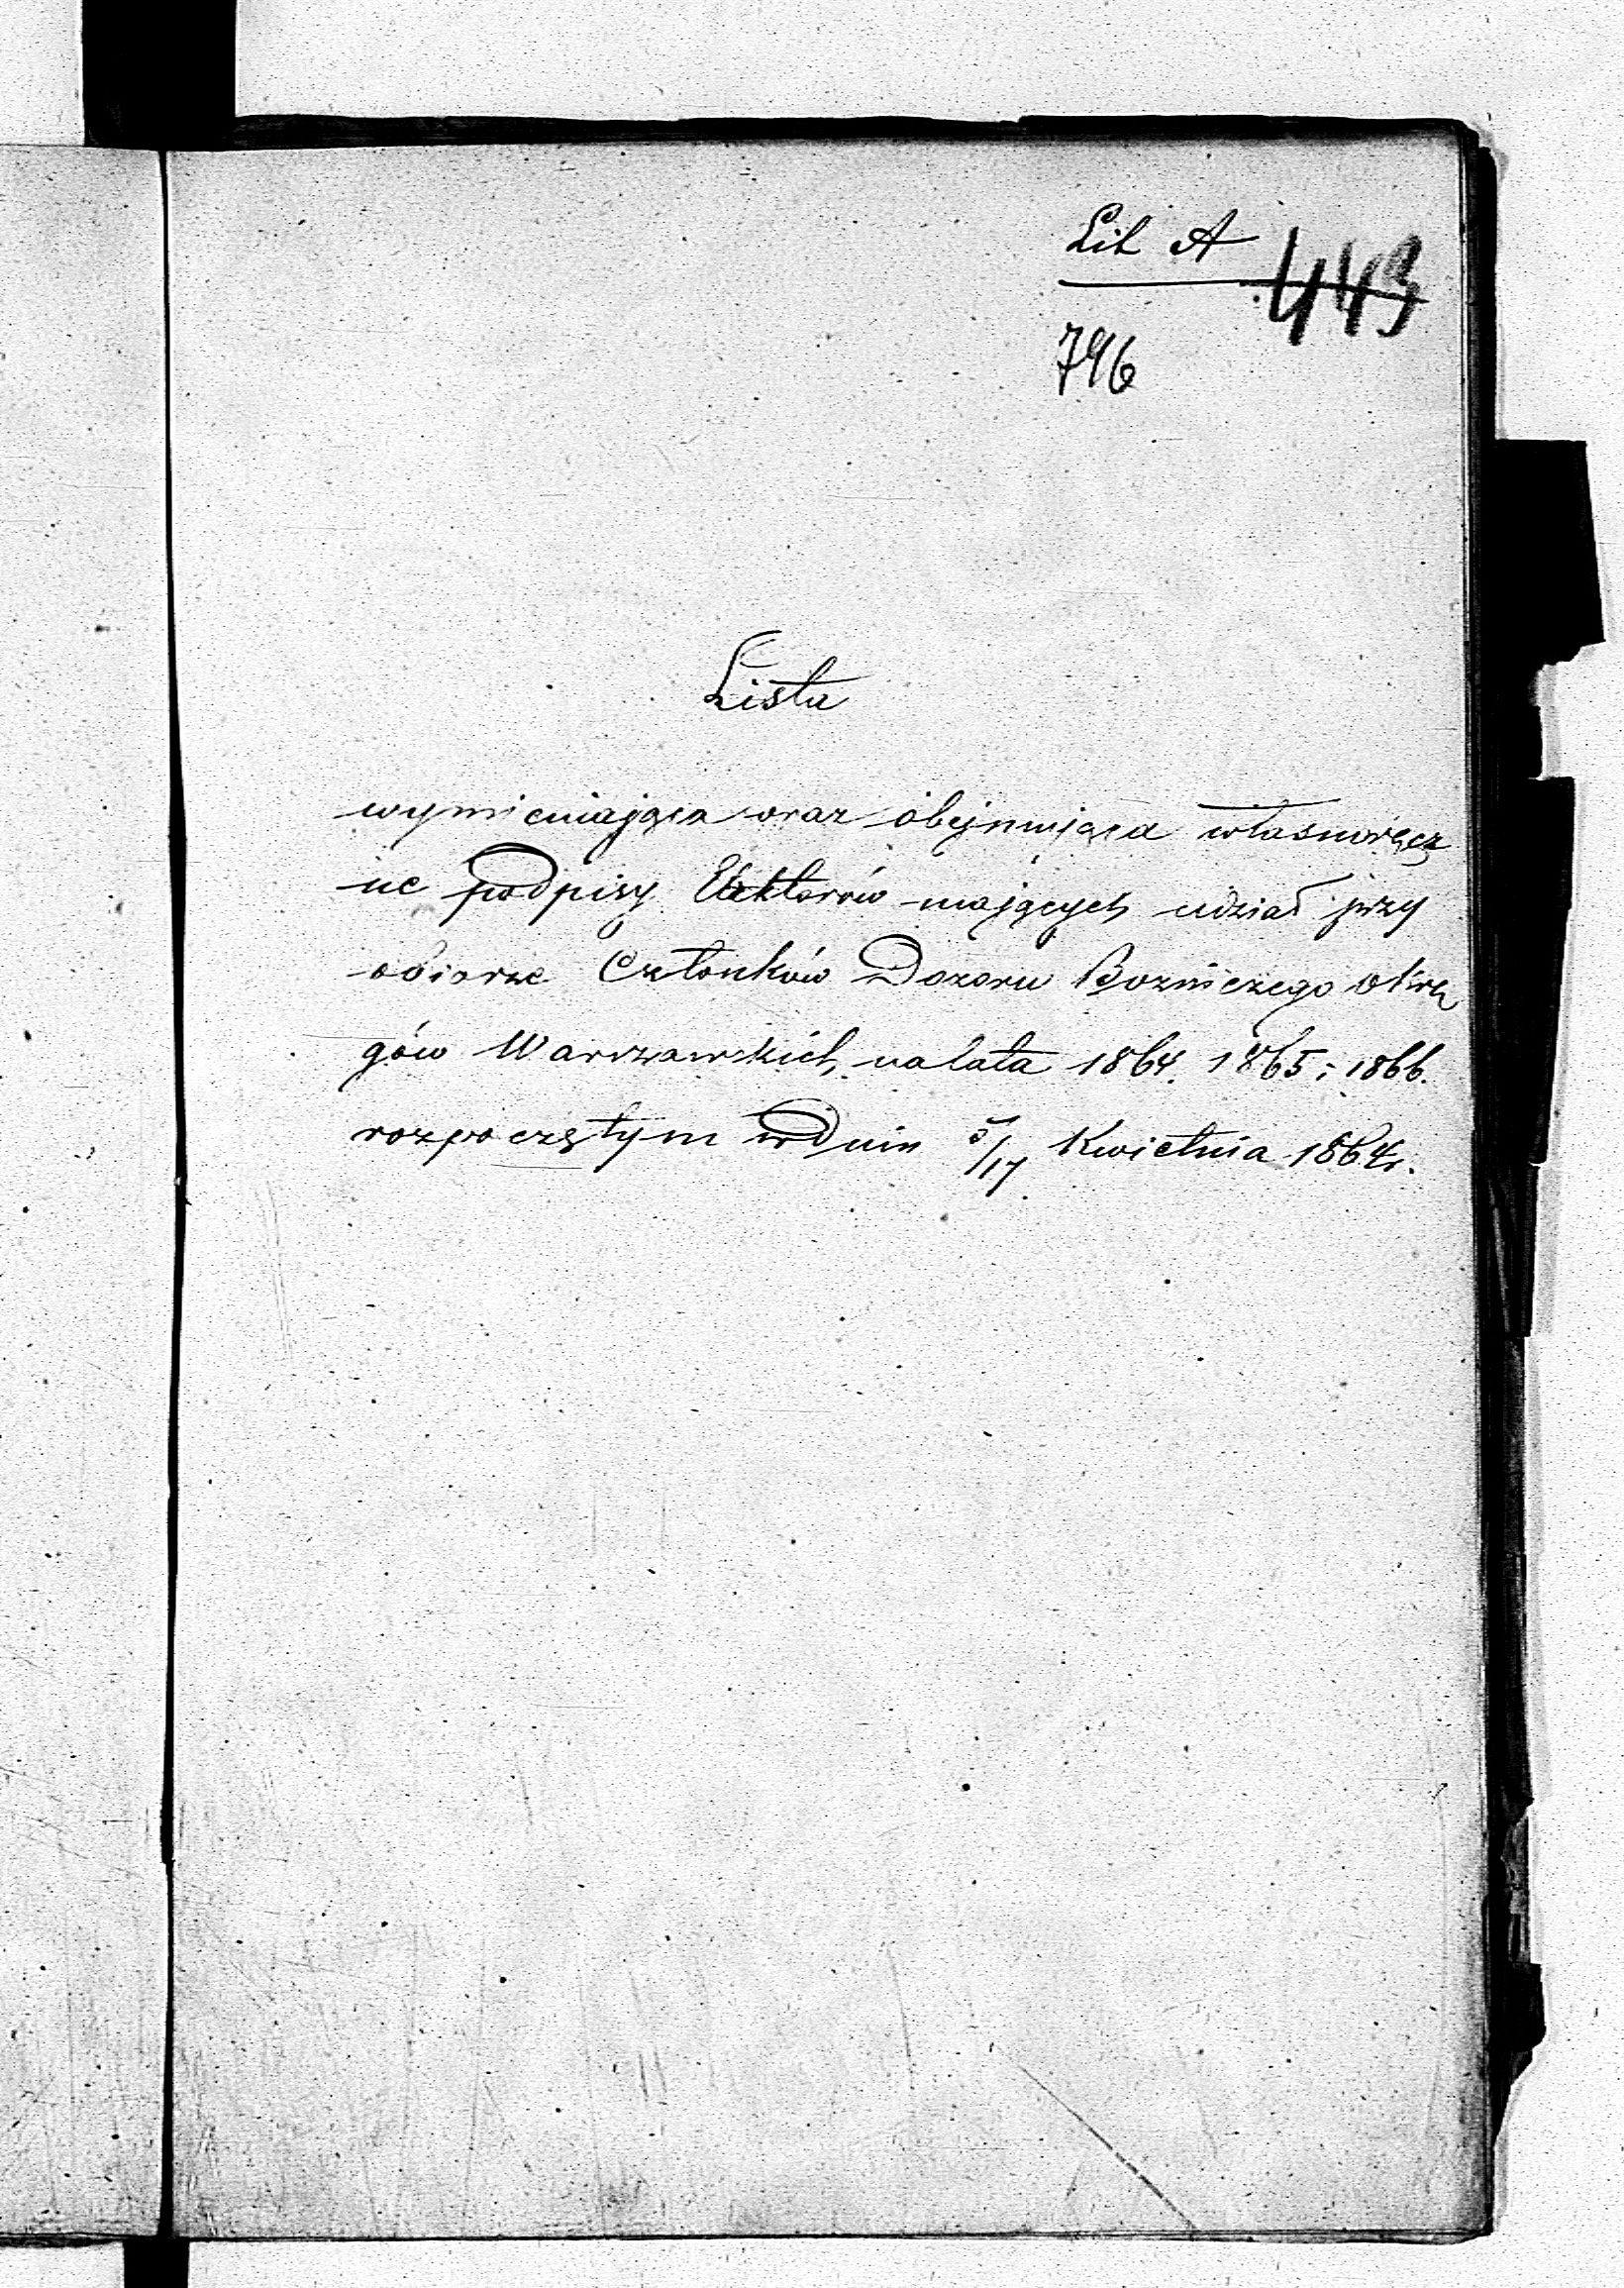 Lit A
443
796
Lista
wymieniająca oraz obejmująca własnoręcz
ne podpisy Elektorów mających udział przy
obiorze Członków Dozoru Bożniczego Okrę
gów Warszawskich, na lata 1864. 1865 i 1866.
rozpoczętym w dniu 5/17 Kwietnia 1864 r.